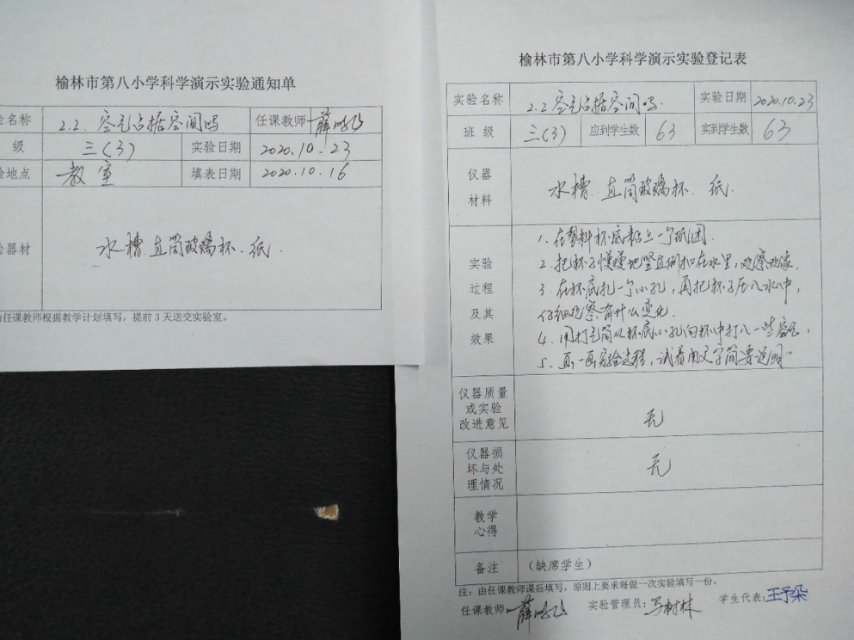 榆林市第八小学科学演示实验通知单
名称 2.2. 空气占据空间吗 任课教师 薛
级 三(3) 实验日期 2020.10.23
地点 教室 填表日期 2020.10.16
器材 水槽.直筒玻璃杯.纸.
任课教师根据教学计划填写，提前3天送交实验室。
榆林市第八小学科学演示实验登记表
实验名称 2.2 空气占据空间吗. 实验日期 2020.10.23
班级 三(3) 应到学生数 63 实到学生数 63
仪器
材料
水槽.直筒玻璃杯.纸.
实验
过程
及其
效果
1、在塑料杯底粘上一个纸团.
2、把杯子慢慢地竖直倒扣在水里,观察现象
3、在杯底扎一个小孔,再把杯子压入水中,
仔细观察有什么变化.
4、用打气筒从杯底小孔向杯中打入一些空气.
5、画一画实验过程,试着用文字简要说明.
仪器质量
或实验
改进意见
无
仪器损
坏与处
理情况
无
教学
心得
备注 （缺席学生）
注：由任课教师课后填写，原则上要求每做一次实验填写一份。
任课教师: 薛 实验管理员: 树林 学生代表: 王予朵